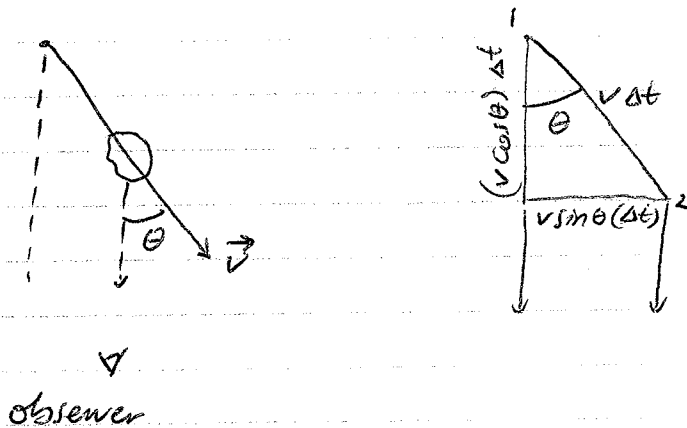 θ
v⃗
∇
observer
1
(v cosθ) Δt
θ
v Δt
2
v sinθ (Δt)